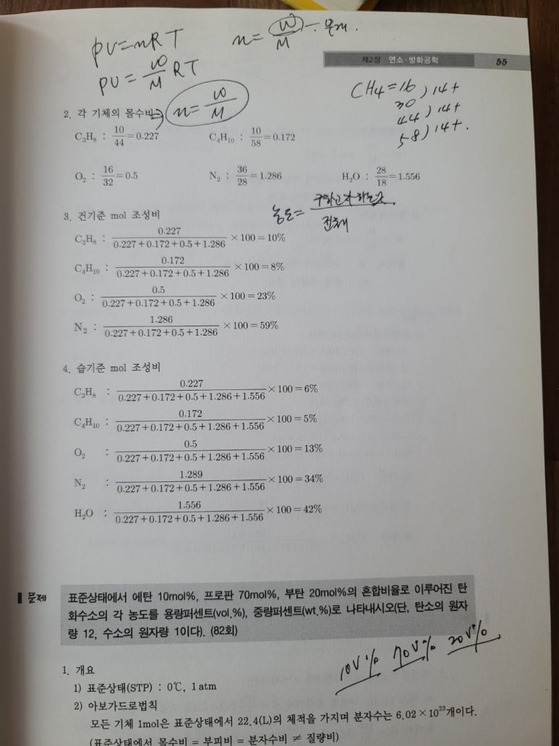 PV=nRT
n=W/M ÷ 문제.
PV=W/M RT
제2장 연소·방화공학 55
CH4=16
30 )14+
44 )14+
58 )14+.
2. 각 기체의 몰수비
n=W/M
C₃H₈ : 10/44=0.227 C₄H₁₀ : 10/58=0.172
O₂ : 16/32=0.5 N₂ : 36/28=1.286 H₂O : 28/18=1.556
농도= 구하고자하는값/전체
3. 건기준 mol 조성비
C₃H₈ : 0.227/0.227+0.172+0.5+1.286 ×100=10%
C₄H₁₀ : 0.172/0.227+0.172+0.5+1.286 ×100=8%
O₂ : 0.5/0.227+0.172+0.5+1.286 ×100=23%
N₂ : 1.286/0.227+0.172+0.5+1.286 ×100=59%
4. 습기준 mol 조성비
C₃H₈ : 0.227/0.227+0.172+0.5+1.286+1.556 ×100=6%
C₄H₁₀ : 0.172/0.227+0.172+0.5+1.286+1.556 ×100=5%
O₂ : 0.5/0.227+0.172+0.5+1.286+1.556 ×100=13%
N₂ : 1.289/0.227+0.172+0.5+1.286+1.556 ×100=34%
H₂O : 1.556/0.227+0.172+0.5+1.286+1.556 ×100=42%
문제 표준상태에서 에탄 10mol%, 프로판 70mol%, 부탄 20mol%의 혼합비율로 이루어진 탄
화수소의 각 농도를 용량퍼센트(vol.%), 중량퍼센트(wt.%)로 나타내시오(단, 탄소의 원자
량 12, 수소의 원자량 1이다). (82회)
10V% 70V% 20V%
1. 개요
1) 표준상태(STP) : 0℃, 1atm
2) 아보가드로법칙
모든 기체 1mol은 표준상태에서 22.4(L)의 체적을 가지며 분자수는 6.02×10²³개이다.
(표준상태에서 몰수비 = 부피비 = 분자수비 ≠ 질량비)